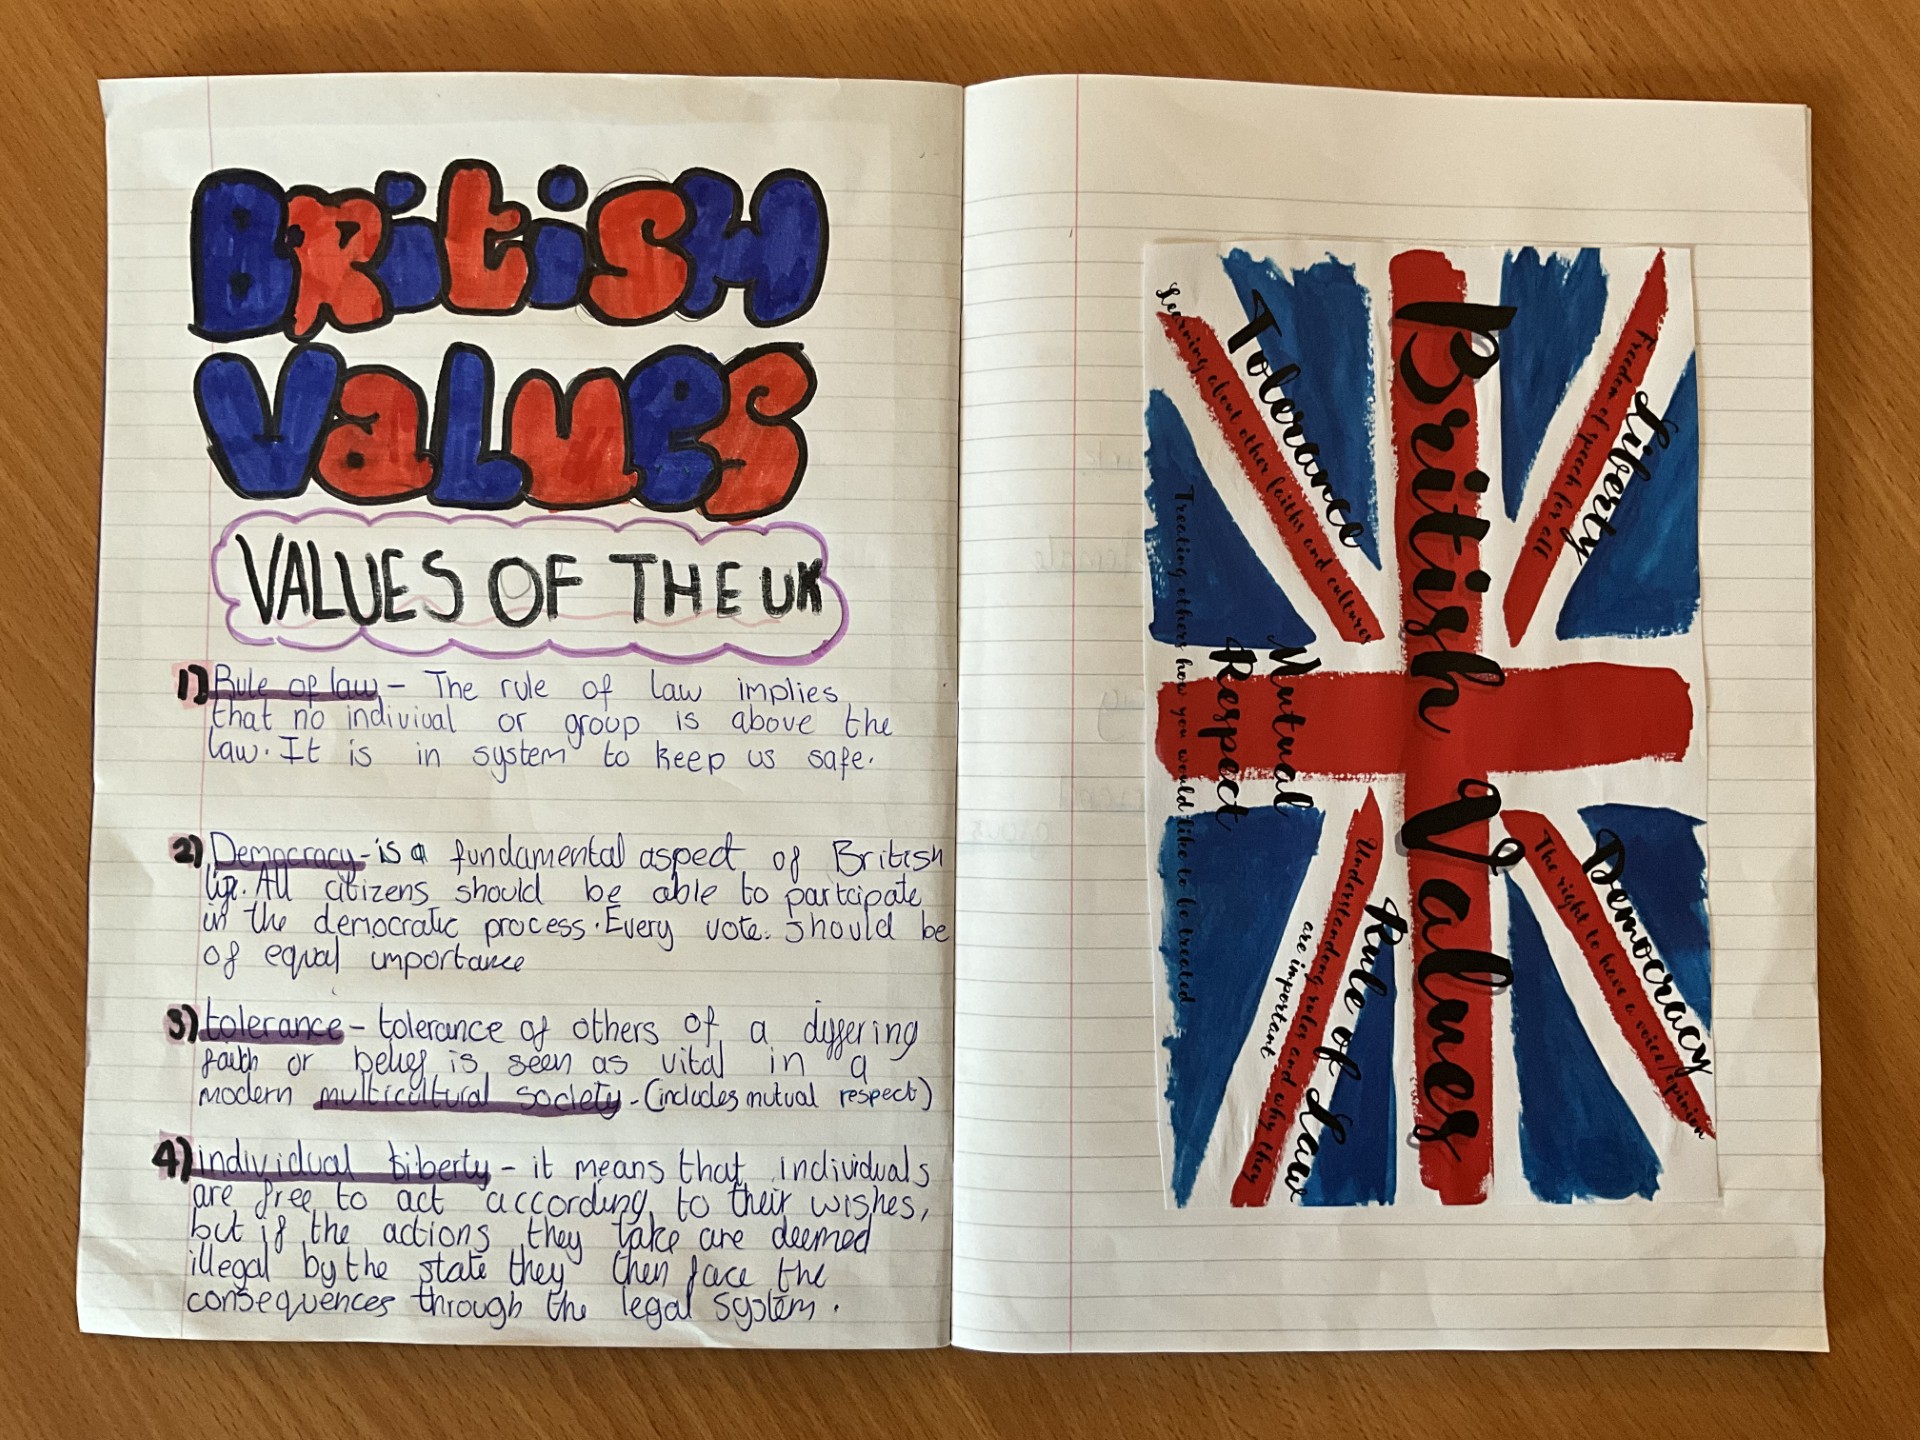 BRitisH
VaLues
VALUES OF THE UK
1) Rule of law - The rule of law implies
that no indivival or group is above the
law. It is in system to keep us safe.
2) Democracy - is a fundamental aspect of British
life. All citizens should be able to participate
in the democratic process. Every vote. should be
of equal importance
3) tolerance - tolerance of others of a differing
faith or belief is seen as vital in a
modern multicultural society - (includes mutual respect)
4) individual liberty - it means that individuals
are free to act according to their wishes,
but if the actions they take are deemed
illegal by the state they then face the
consequences through the legal system.
British Values
Tolerance
Learning about other faiths and cultures
Liberty
Freedom of speech for all
Mutual
Respect
Treating others how you would like to be treated
Rule of Law
Understanding rules and why they
are important
Democracy
The right to have a voice/opinion